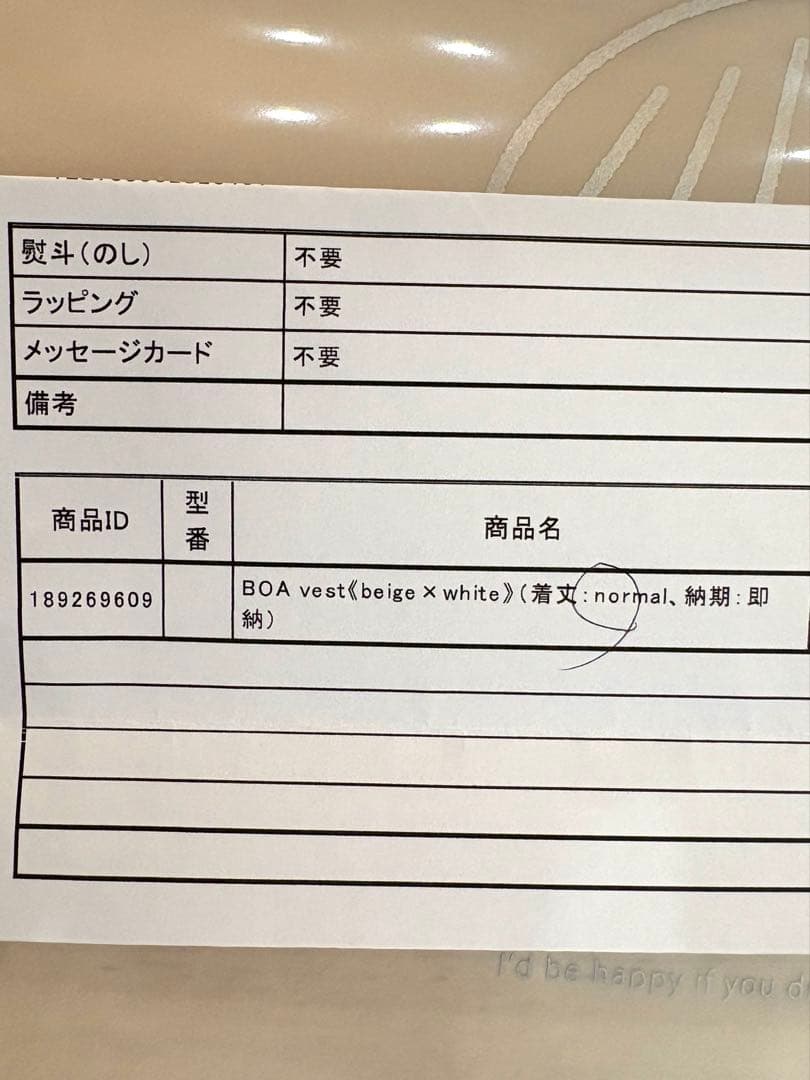 熨斗(のし) 不要
ラッピング 不要
メッセージカード 不要
備考
商品ID 型番 商品名
189269609 BOA vest《beige×white》(着丈:normal、納期:即
納)
I'd be happy if you